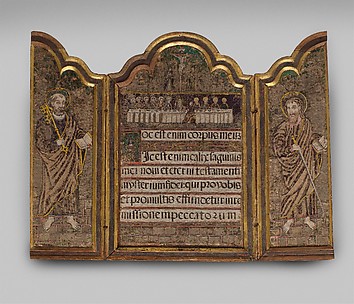 oc est enim corpus meuz
ic est enim calix sanguinis
mei noui et eterni testamenti
mysterium fidei qui pro vobis
et pro multis effundetur in re
missionem peccatozum